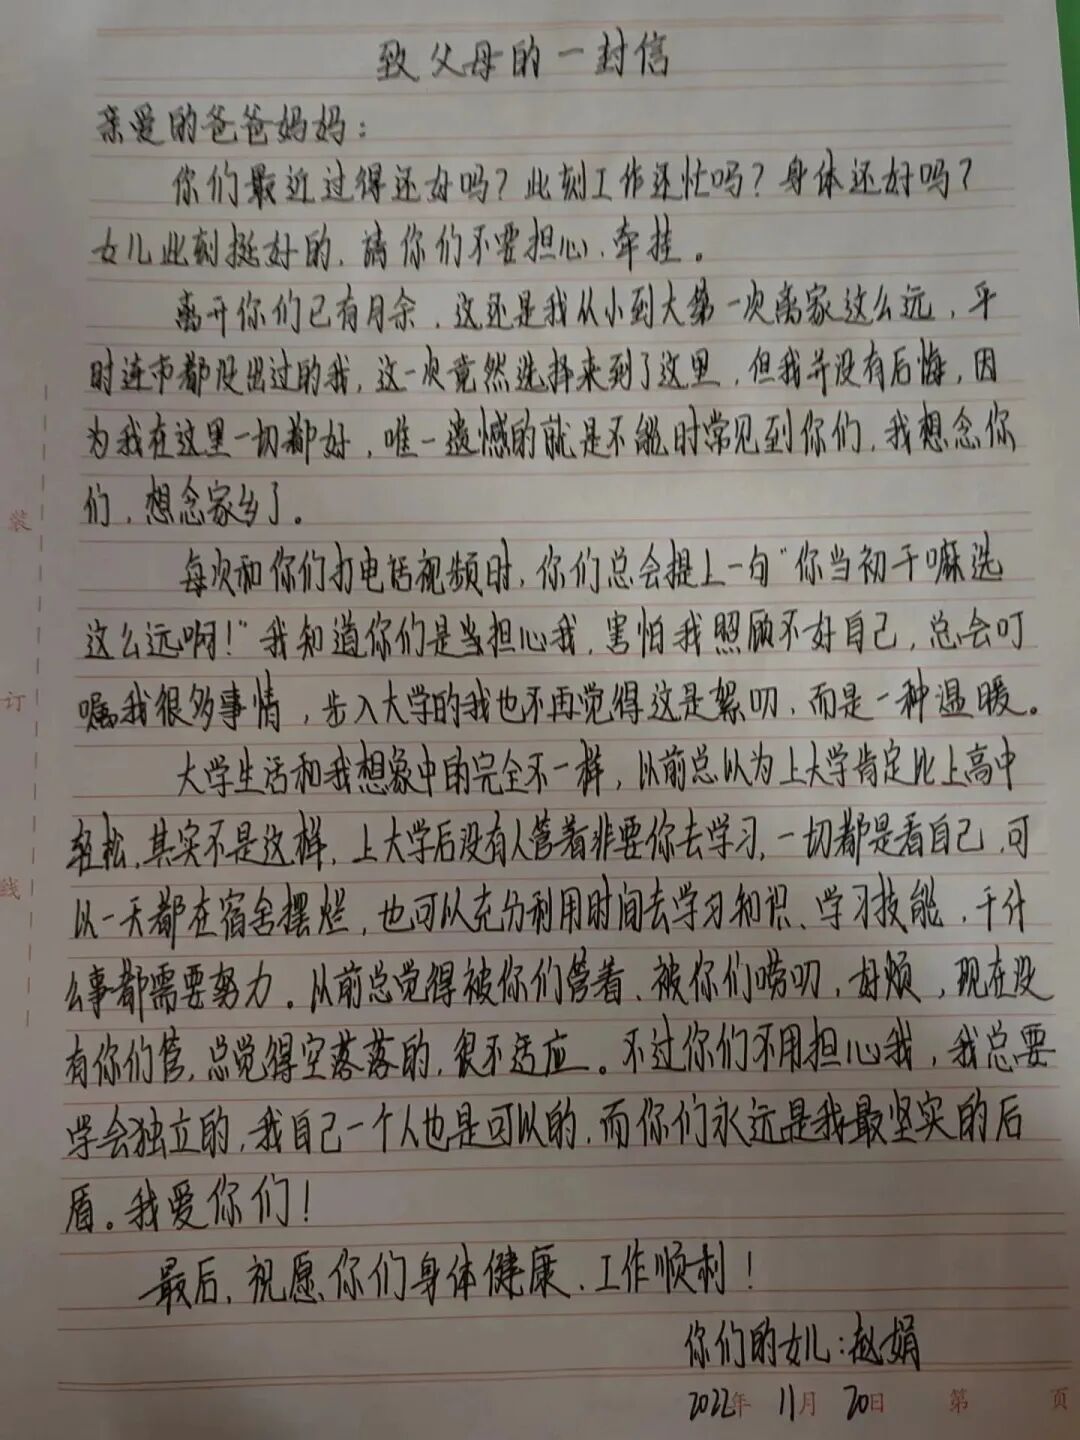 致父母的一封信
亲爱的爸爸妈妈：
你们最近过得还好吗？此刻工作还忙吗？身体还好吗？
女儿此刻挺好的，请你们不要担心、牵挂。
离开你们已有月余，这还是我从小到大第一次离家这么远，平
时连市都没出过的我，这一次竟然选择来到了这里，但我并没有后悔，因
为我在这里一切都好，唯一遗憾的就是不能时常见到你们，我想念你
们，想念家乡了。
每次和你们打电话视频时，你们总会提上一句“你当初干嘛选
这么远啊！”我知道你们是当担心我，害怕我照顾不好自己，总会叮
嘱我很多事情，步入大学的我也不再觉得这是絮叨，而是一种温暖。
大学生活和我想象中的完全不一样，以前总以为上大学肯定比上高中
轻松，其实不是这样，上大学后没有人管着非要你去学习，一切都是看自己，可
以一天都在宿舍摆烂，也可以充分利用时间去学习知识、学习技能，干什
么事都需要努力。从前总觉得被你们管着、被你们唠叨，好烦，现在没
有你们管，总觉得空落落的，很不适应。不过你们不用担心我，我总要
学会独立的，我自己一个人也是可以的，而你们永远是我最坚实的后
盾。我爱你们！
最后，祝愿你们身体健康、工作顺利！
你们的女儿：赵娟
2022年 11月 20日 第 页
装
订
线